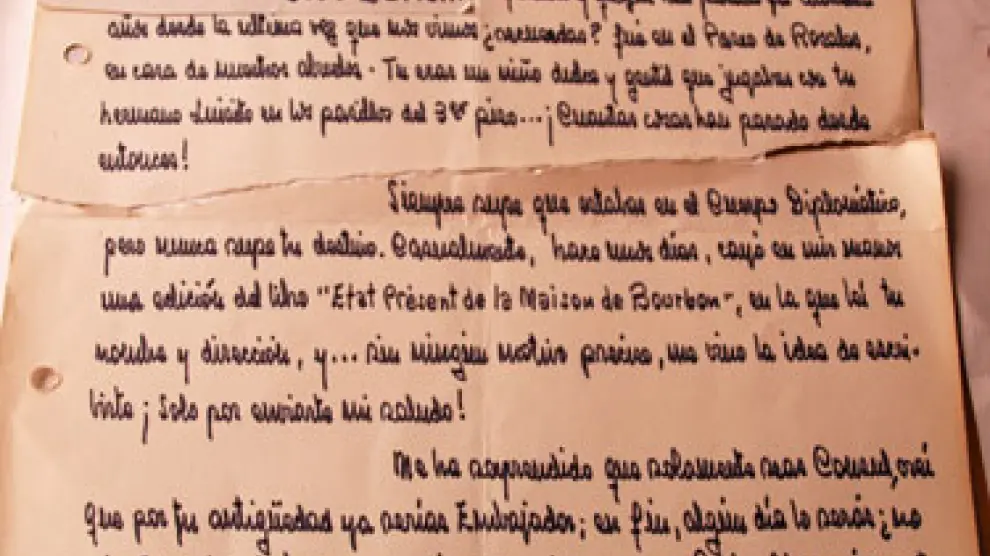 años desde la última vez que nos vimos ¿recuerdas? fué en el Paseo de Rosales,
en casa de nuestros abuelos - Tu eras un niño dulce y gentil que jugabas con tu
hermano Luisito en los pasillos del 3er piso... ¡Cuantas cosas han pasado desde
entonces!
Siempre supe que estabas en el Cuerpo Diplomático,
pero nunca supe tu destino. Casualmente, hace unos días, cayó en mis manos
una edición del libro "Etat Présent de la Maison de Bourbon", en la que leí tu
nombre y dirección, y... sin ningún motivo preciso, me vino la idea de escri-
birte ¡Solo por enviarte mi saludo!
Me ha sorprendido que solamente seas Consul, creí
que por tu antigüedad ya serías Embajador; en fin, algún día lo serás; no